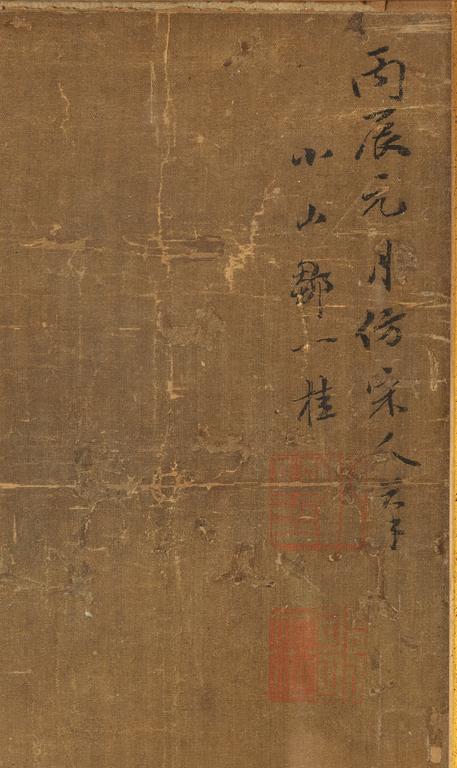 丙辰元月仿宋人筆
小山鄒一桂